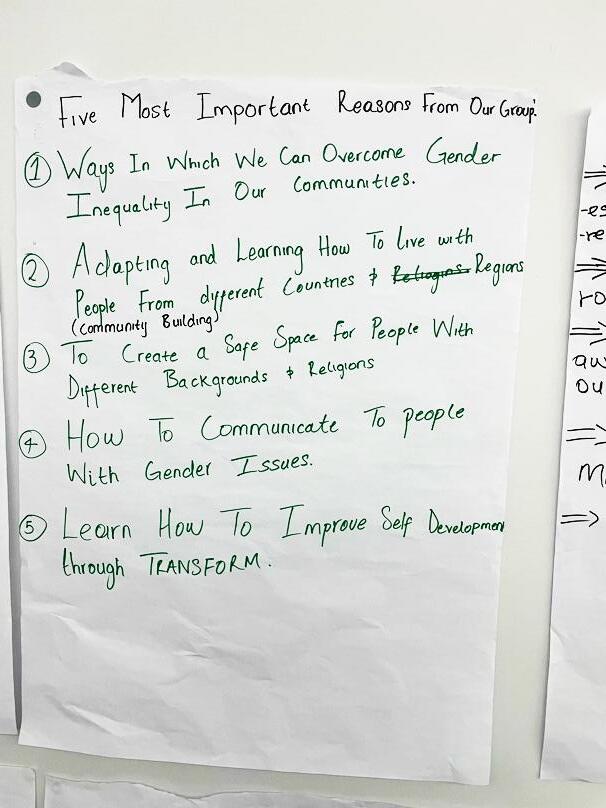 Five Most Important Reasons From Our Group:
① Ways In Which We Can Overcome Gender
Inequality In Our Communities.
② Adapting and Learning How To live with
People From different Countries & Religions Regions
(Community Building)
③ To Create a Safe Space For People With
Different Backgrounds & Religions
④ How To Communicate To people
With Gender Issues.
⑤ Learn How To Improve Self Development
through TRANSFORM.
⇒
-es
-re
⇒
ro
⇒
aw
ou
⇒
M
⇒